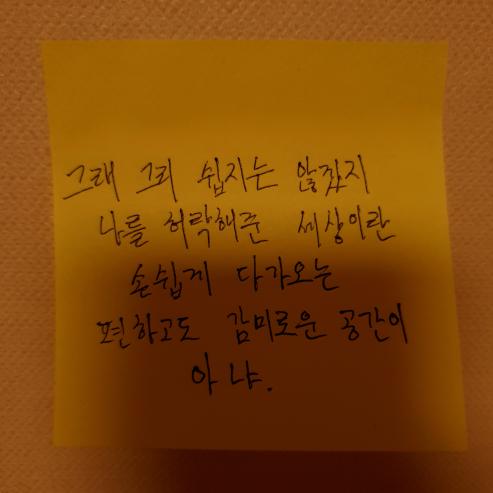 그래 그리 쉽지는 않겠지
나를 허락해준 세상이란
손쉽게 다가오는
편하고도 감미로운 공간이
아냐.